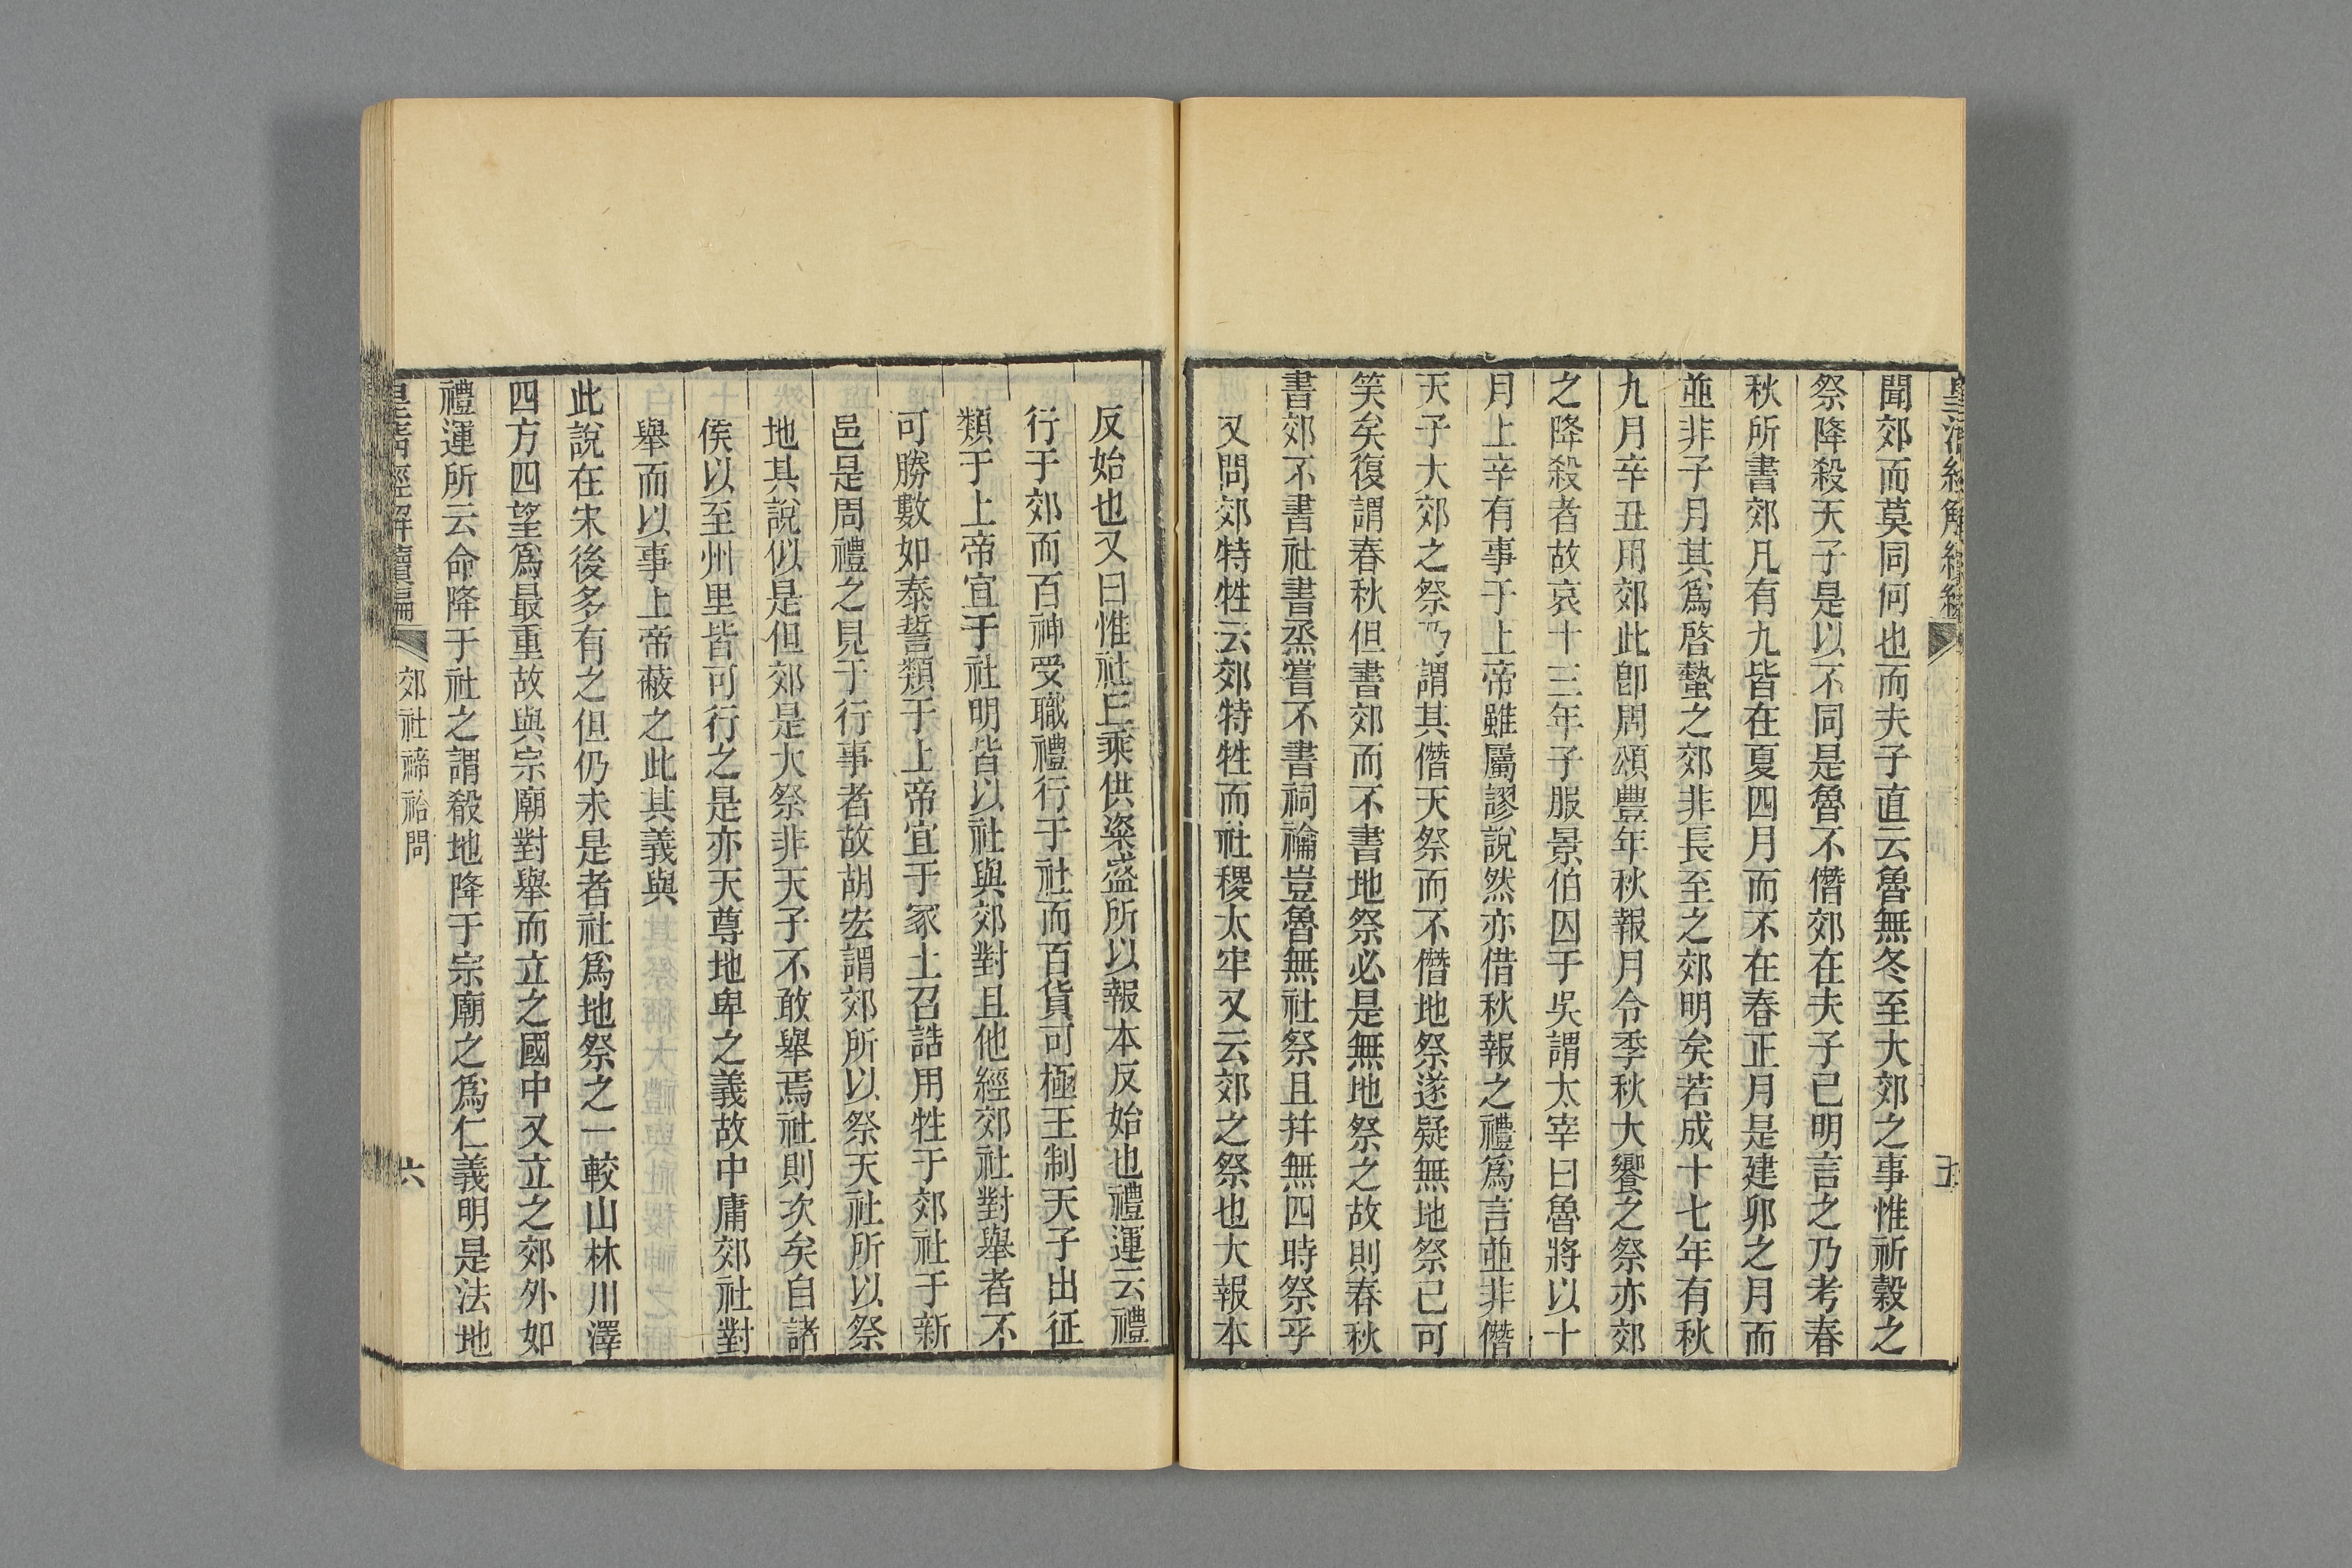 聞郊而莫同何也而夫子直云魯無冬至大郊之事惟祈穀之
祭降殺天子是以不同是魯不僭郊在夫子已明言之乃考春
秋所書郊凡有九皆在夏四月而不在春正月是建卯之月而
並非子月其爲啓蟄之郊非長至之郊明矣若成十七年有秋
九月辛丑用郊此卽周頌豐年秋報月令季秋大饗之祭亦郊
之降殺者故哀十三年子服景伯囚于吳謂太宰曰魯將以十
月上辛有事于上帝雖屬謬說然亦借秋報之禮爲言並非僭
天子大郊之祭乃謂其僭天祭而不僭地祭遂疑無地祭已可
笑矣復謂春秋但書郊而不書地祭必是無地祭之故則春秋
書郊不書社書烝嘗不書祠禴豈魯無社祭且并無四時祭乎
又問郊特牲云郊特牲而社稷太牢又云郊之祭也大報本
反始也又曰惟社丘乘供粢盛所以報本反始也禮運云禮
行于郊而百神受職禮行于社而百貨可極王制天子出征
類于上帝宜于社明皆以社與郊對且他經郊社對舉者不
可勝數如泰誓類于上帝宜于冢土召誥用牲于郊社于新
邑是周禮之見于行事者故胡宏謂郊所以祭天社所以祭
地其說似是但郊是大祭非天子不敢舉焉社則次矣自諸
侯以至州里皆可行之是亦天尊地卑之義故中庸郊社對
舉而以事上帝蔽之此其義與
此說在宋後多有之但仍未是者社爲地祭之一較山林川澤
四方四望爲最重故與宗廟對舉而立之國中又立之郊外如
禮運所云命降于社之謂殽地降于宗廟之爲仁義明是法地
皇清經解續編
郊社禘祫問
六